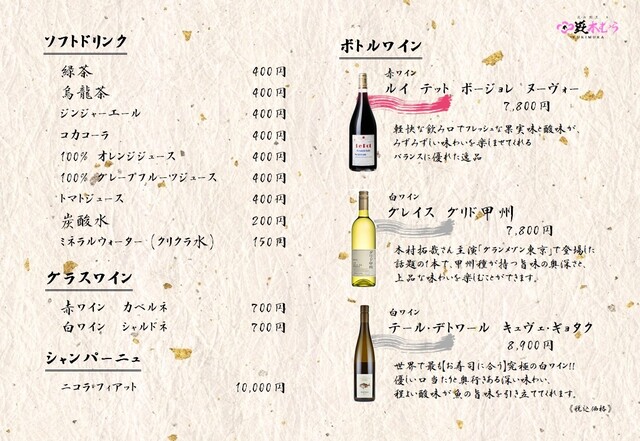 ソフトドリンク
緑茶 400円
烏龍茶 400円
ジンジャーエール 400円
コカコーラ 400円
100% オレンジジュース 400円
100% グレープフルーツジュース 400円
トマトジュース 400円
炭酸水 200円
ミネラルウォーター (クリクラ水) 150円
グラスワイン
赤ワイン カベルネ 700円
白ワイン シャルドネ 700円
シャンパーニュ
ニコラ・フィアット 10,000円
ボトルワイン
赤ワイン
ルイ テット ボージョレ ヌーヴォー
7,800円
軽快な飲み口でフレッシュな果実味と酸味が、
みずみずしい味わいを楽しませてくれる
バランスに優れた逸品
白ワイン
グレイス グリド甲州
7,800円
木村拓哉さん主演「グランメゾン東京」で登場した
話題の1本で、甲州種が持つ旨味の奥深さと、
上品な味わいを楽しむことができます。
白ワイン
テール・デトワール キュヴェ・ギョタク
8,900円
世界で最も【お寿司に合う】究極の白ワイン!!
優しい口当たりと奥行きある深い味わい、
程よい酸味が魚の旨味を引き立ててくれます。
《税込価格》